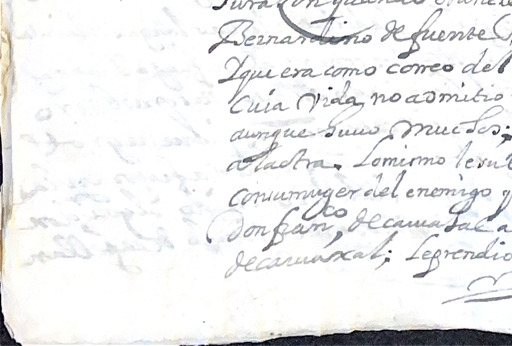 Bernardino de fuente
Yque era como correo del
Cuia vida no admitio
aunque huuo muchos;
a la otra. Lo mismo le su
con su muger del enemigo q
Don fran^co, de
de caruaxal; Le prendio